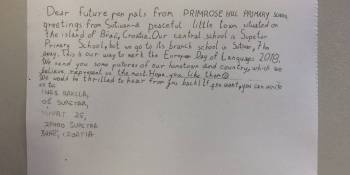 Dear future pen pals from PRIMROSE HILL PRIMARY SCHOOL
greetings from Sutivan-a peaceful little town situated on
the island of Brač, Croatia. Our central school is Supetar
Primary School, but we go to its branch school in Sutivan, 7km
away. This is our way to mark the European Day of Languages 2018.
We send you some pictures of our hometown and country, which we
believe represent us the most. Hope you like them☺
We would be thrilled to hear from you back! If you want, you can write
us to:
INES
OŠ SUPETAR,
25,
21400 SUPETAR
BRAČ, CROATIA